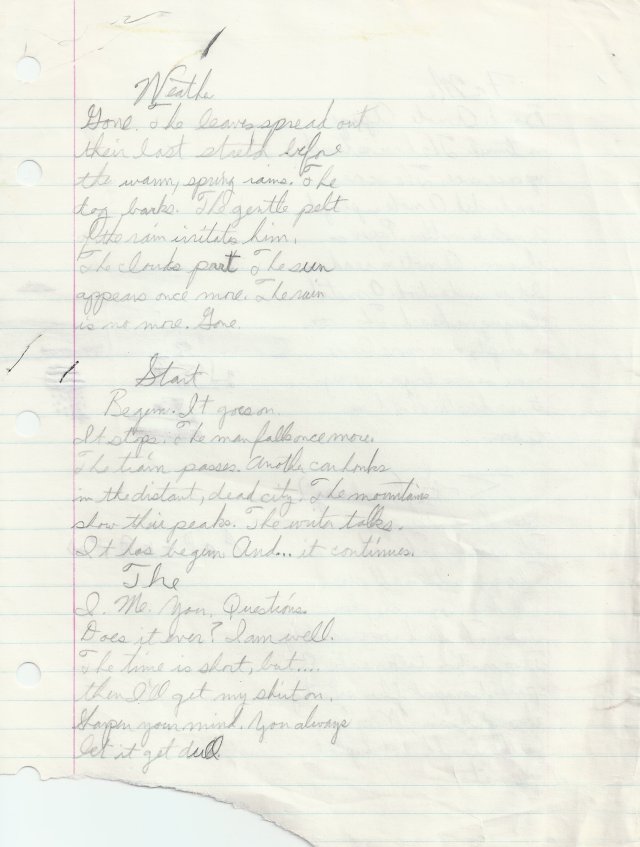 Weather
Gone. The leaves spread out
their last stretch before
the warm, spring rains. The
dog barks. The gentle pelt
of the rain irritates him.
The clouds part The sun
appears once more. The rain
is no more. Gone.
Start
Begin. It goes on.
It stops. The man falls once more.
The train passes. Another car honks
in the distant, dead city. The mountains
show their peaks. The writer talks.
It has begun. And... it continues.
The
I. Me. You. Questions.
Does it ever? I am well.
The time is short, but....
then I'll get my shirt on.
Sharpen your mind. You always
let it get dull